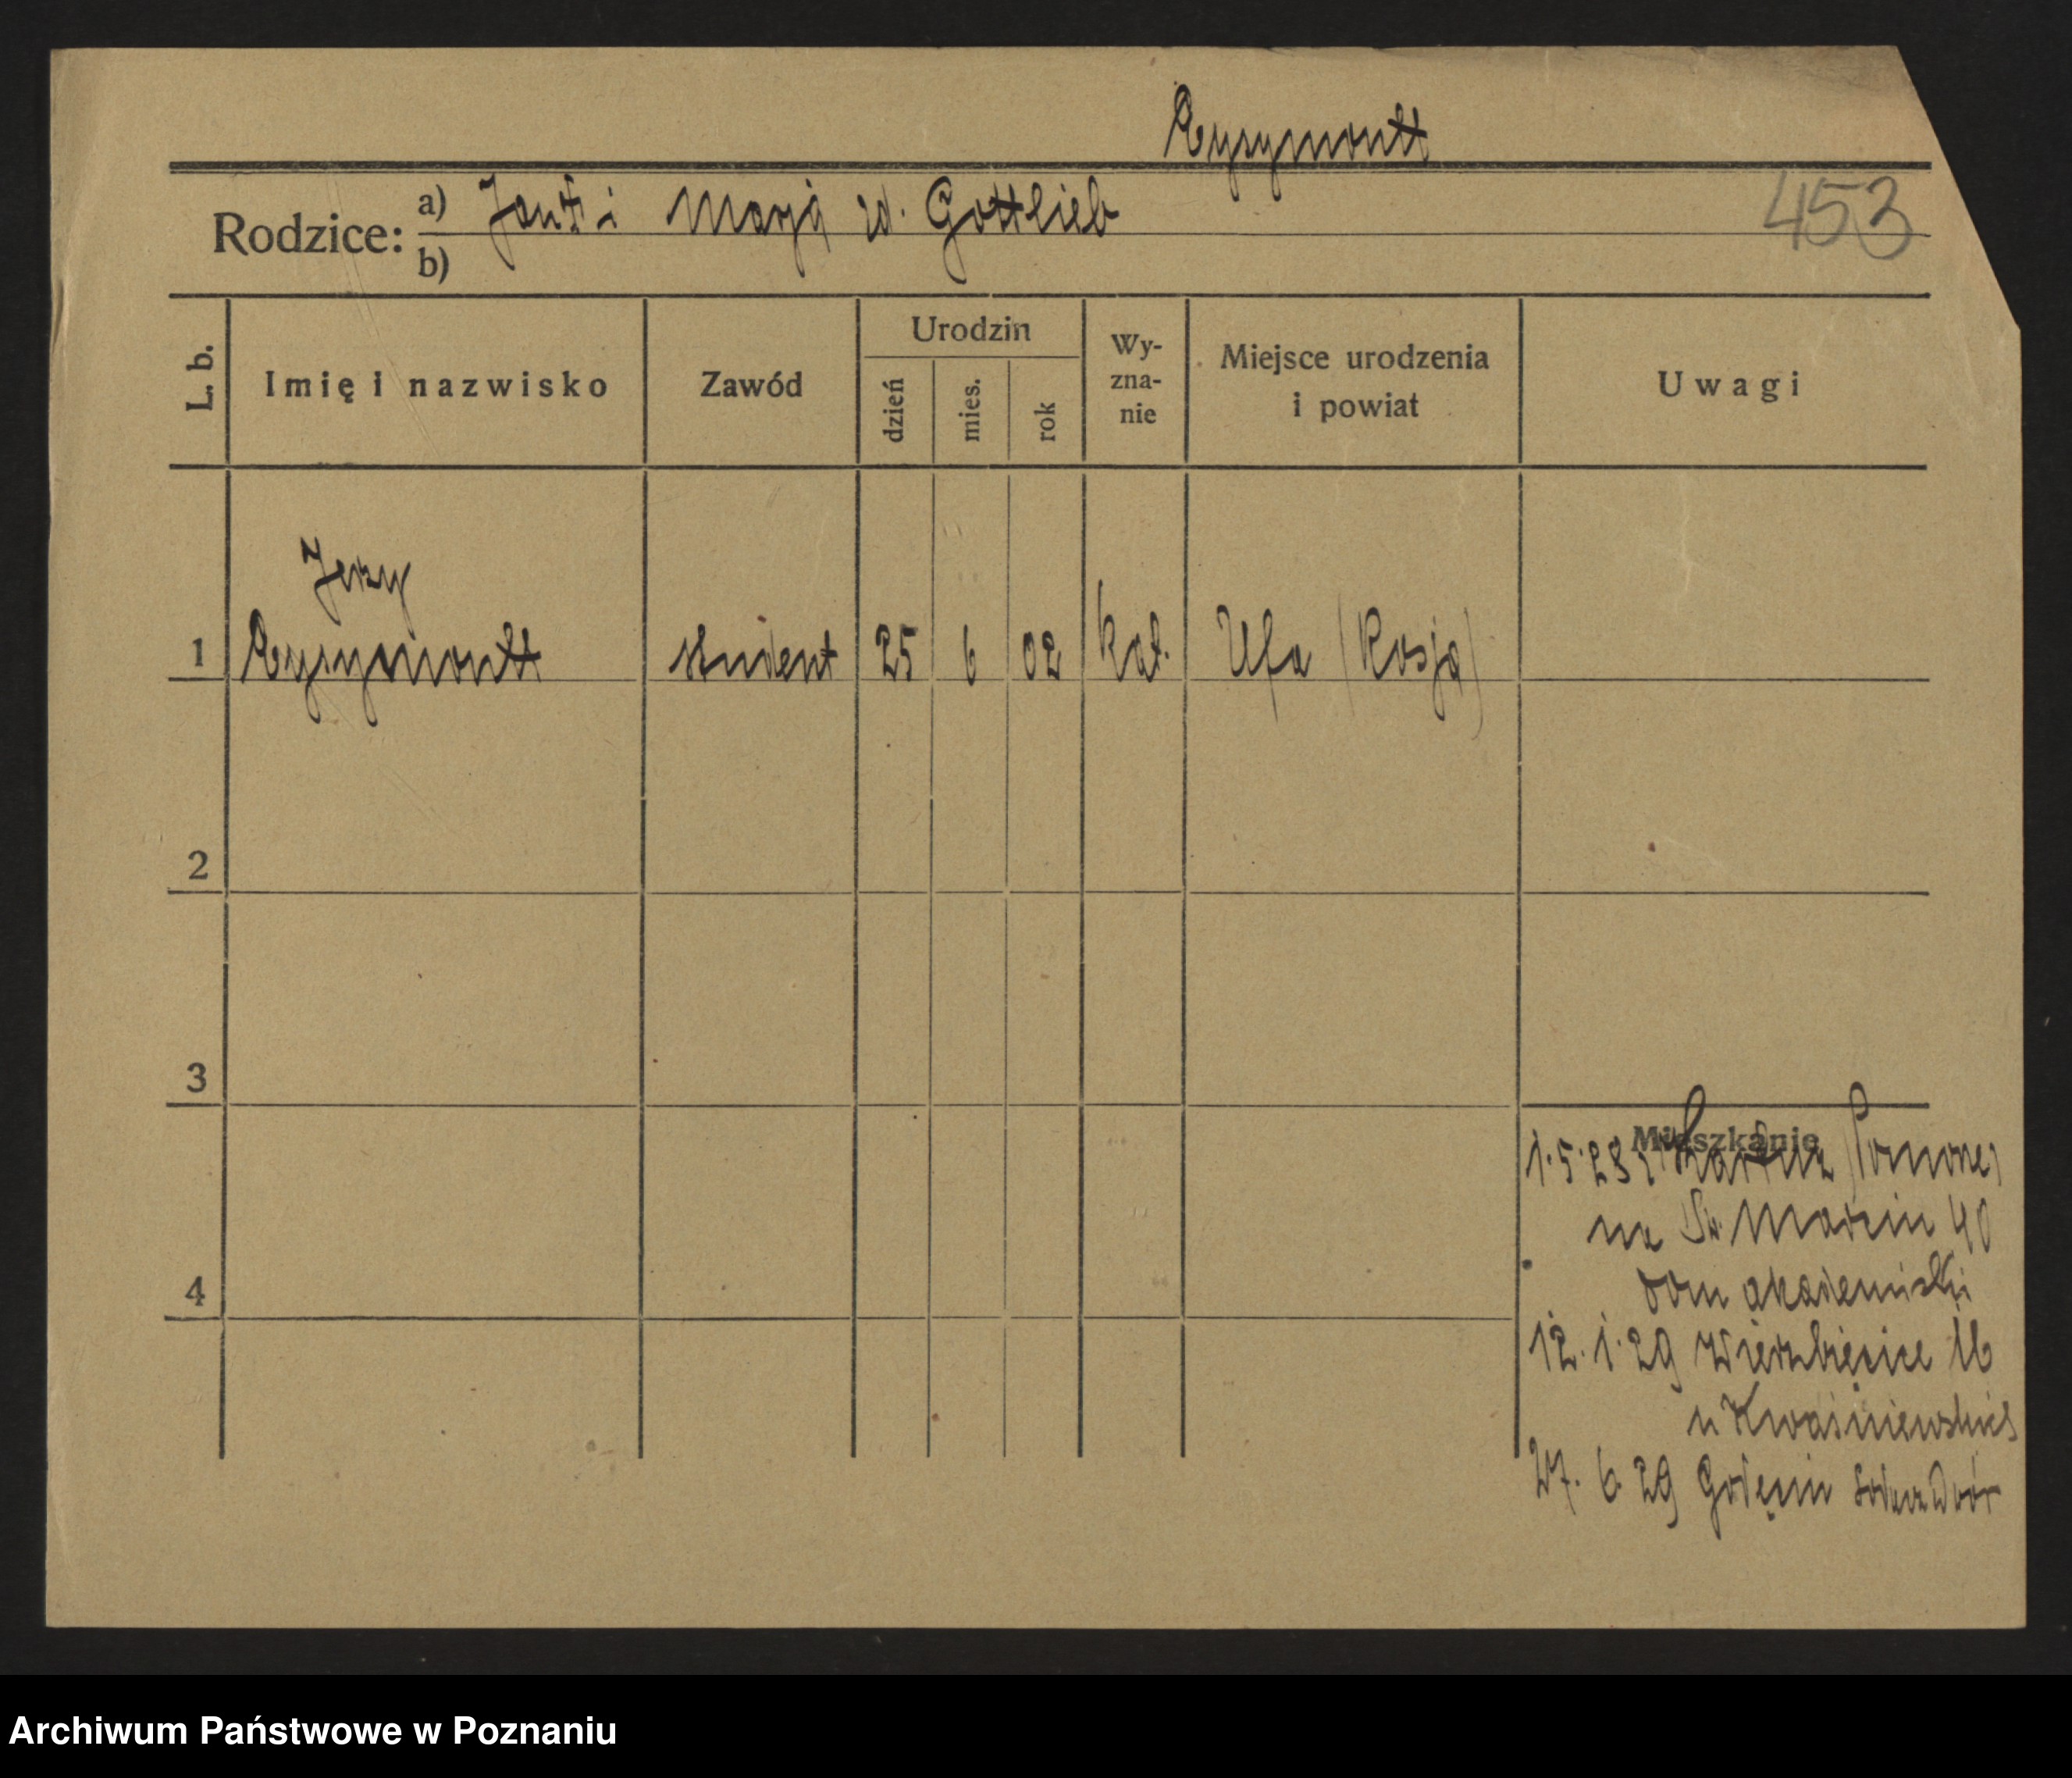 Rysymontt
453
Rodzice: a) i Marja zd. Gottlieb
b)
L. b. Imię i nazwisko Zawód Urodzin dzień mies. rok Wy-zna-nie Miejsce urodzenia i powiat Uwagi
Jerzy
1 Rysymontt student 25 6 02 kat. Ufa (Rosja)
2
3
4
Mieszkanie
1.5.28 z
na Św. Marcin 40
dom akademicki
12.1.29 Wierzbięcice 16
u Kwaśniewskiej
27.6.29 Golęcin
Archiwum Państwowe w Poznaniu